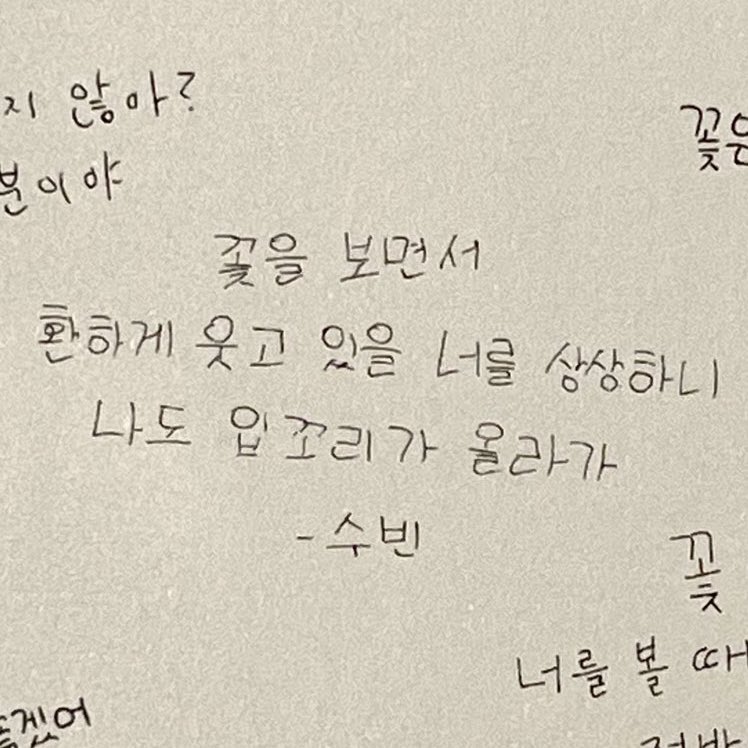 지 않아?
분이야
꽃은
꽃을 보면서
환하게 웃고 있을 너를 상상하니
나도 입꼬리가 올라가
-수빈
꽃
너를 볼 때
겠어